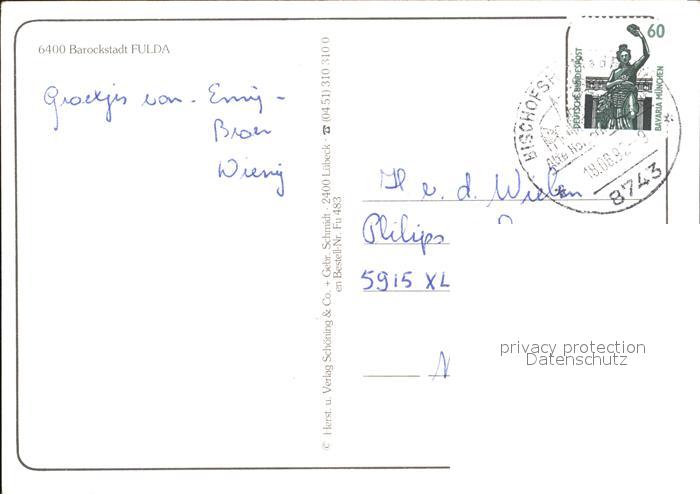 6400 Barockstadt FULDA
Groetjes van Enny -
Bram
Wieny
© Herst. u. Verlag Schöning & Co. + Gebr. Schmidt · 2400 Lübeck · ☎ (04 51) 310 310 0
en Bestell-Nr. Fu 483
60
DEUTSCHE BUNDESPOST
BAVARIA MÜNCHEN
BISCHOFSH
18.08.92-9
8743
v. d. Wielen
Philips
5915 XL
privacy protection
Datenschutz